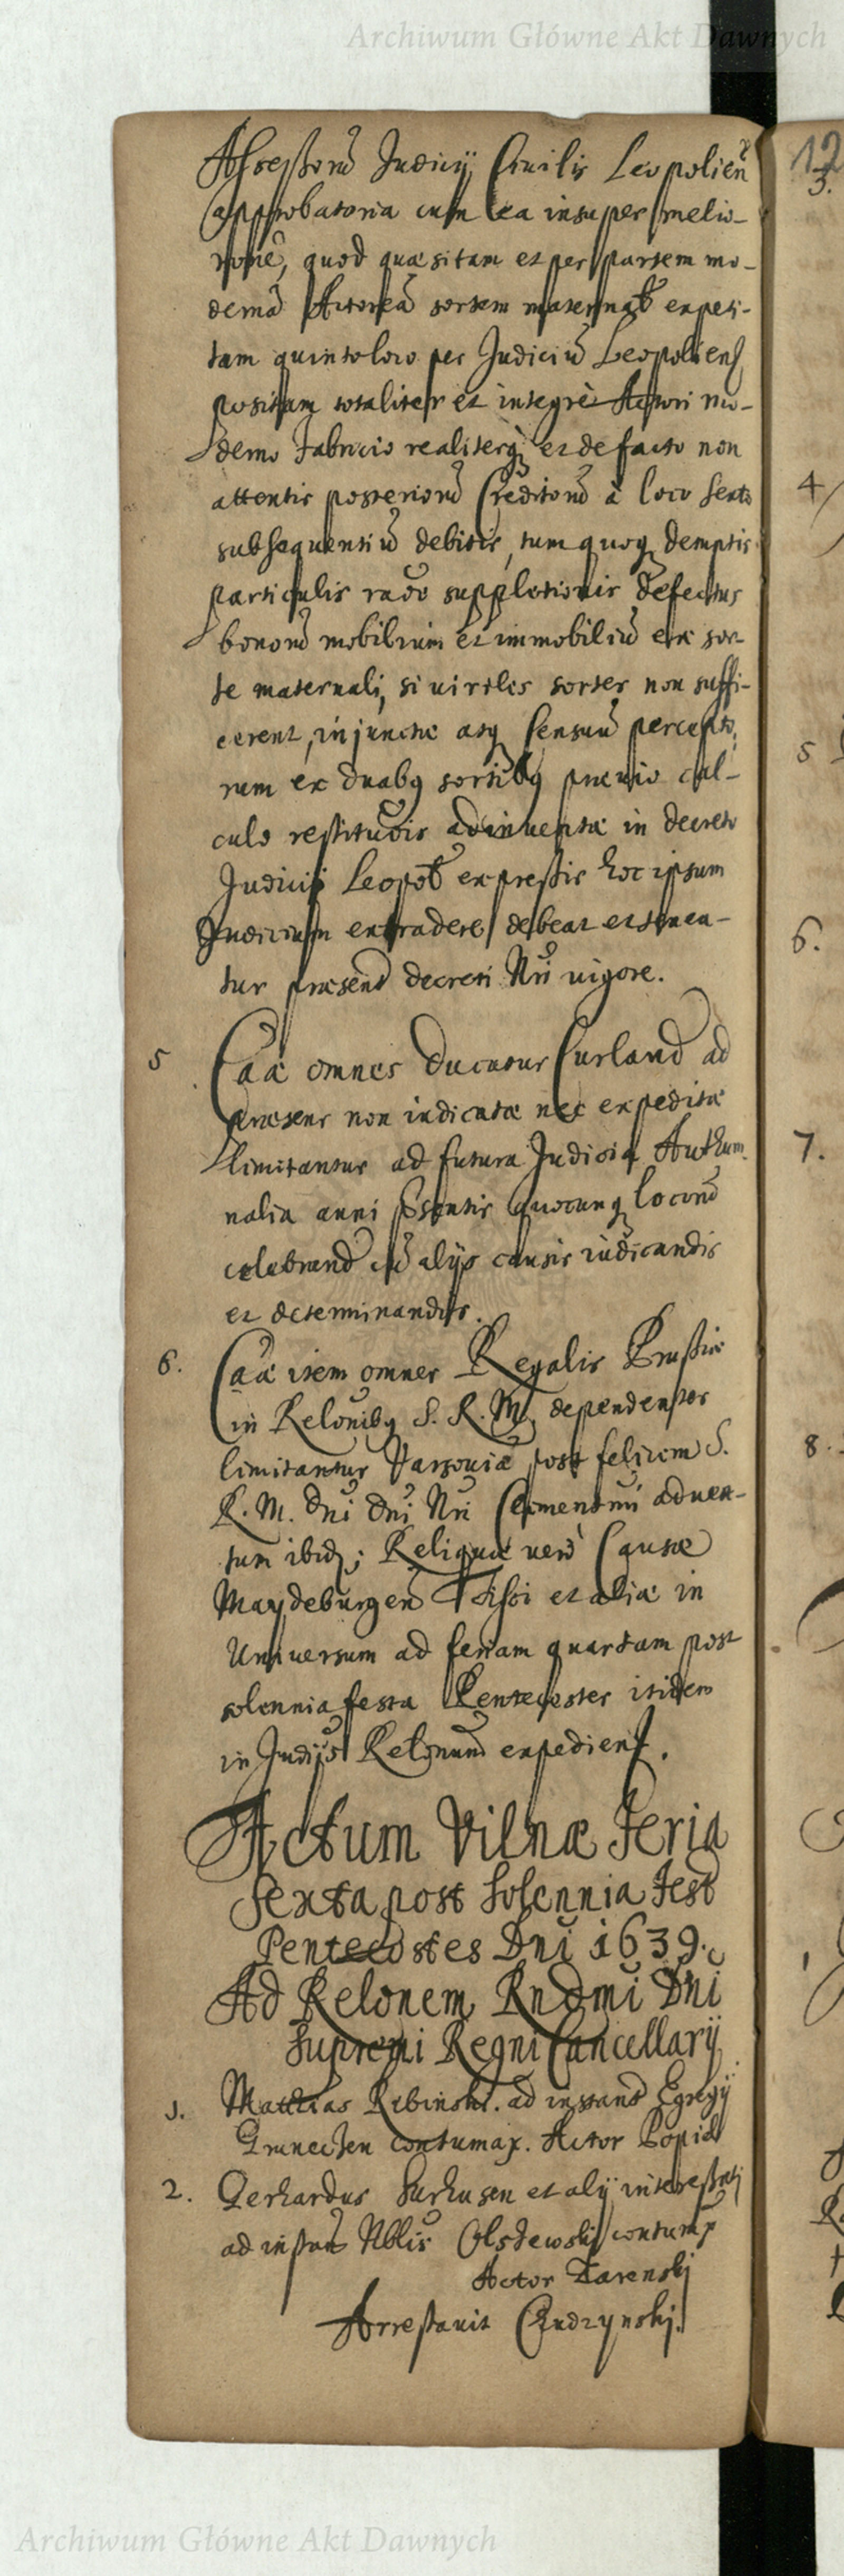 Archiwum Główne Akt Dawnych
Assessorũ Judicij Ciuilis Leopolien̄
approbatoria cum ea insuper melio-
none, quod quæsitam et per partem mo-
dernã Actoreã sortem maternal̃ expeti-
tam quinto loco per Judiciũ Leopoliens̃
positam totaliter et integrè Actori mo-
derno Fabricio realiterq; et de facto non
attentis posteriorũ Creditorũ à loco sexto
subsequentiũ debitis, tum quoq demptis
particulis raõe suppletionis defectus
bonorũ mobilium et immobiliũ ex sor-
te maternali, si uiriles sortes non suffi-
cerent, injunctæ atq Censuũ percepto,
rum ex duabq sortibq præuio cal-
culo restituõis adinuentæ in decreto
Judicij Leopol̃ expressis hoc ipsum
Judicium extradere debeat et tenea-
tur præsent̃ decreti Nr̃i uigore.
5 Caã omnes Ducatus Curland̃ ad
præsens non iudicatæ nec expeditæ
limitantur ad futura Judicia Authum
nalia anni p̃sentis quocunq locorũ
celebrand̃ cũ alijs causis iudicandis
et determinandis.
6. Caã item omnes Regalis Prussiæ
in Relõnibq S. R. M. dependentes
limitantur Varsouiæ post felicem S.
R. M. Dñi Dñi Nr̃i Clementmi aduen-
tum ibid̃; Reliquæ verò Causæ
Maydeburgeñ Fisci et aliæ in
Uniuersum ad feriam quartam post
solennia festa Pentecostes itidem
in Judijs Relõnum expedient.
Actum Vilnæ Feria
Sexta post Solennia Fest̃
Pentecostes Dñi 1639.
Ad Relõnem Rndmi Dñi
Supremi Regni Cancellarij
1. Matthias Ribinski. ad instanc̃ Egregij
Grunechen contumax. Actor Lopid
2. Gerhardus Surhusen et alij
ad instanc̃ Nblis Olszewski contumax
Actor Zarenskj
Arrestauit Cendzynskj.
12
3.
4
5
6.
7.
8.
Archiwum Główne Akt Dawnych